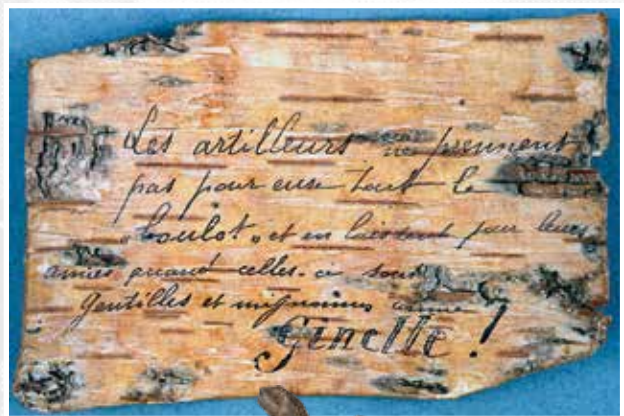 Les artilleurs ne prennent
pas pour eux tout le
„boulot„ et en laissent pour leurs
amies quand celles-ci sont
gentilles et mignonnes comme
Ginette !